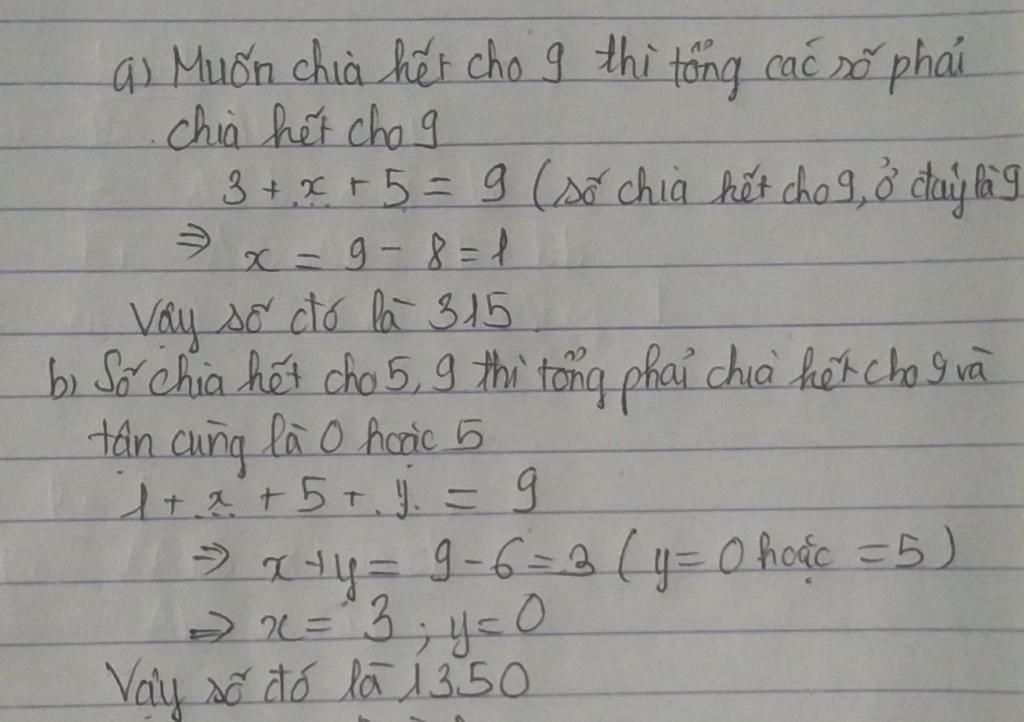 a) Muốn chia hết cho 9 thì tổng các số phải
chia hết cho 9
3 + x + 5 = 9 (số chia hết cho 9, ở đây là 9
⇒ x = 9 - 8 = 1
Vậy số đó là 315
b) Số chia hết cho 5, 9 thì tổng phải chia hết cho 9 và
tận cùng là 0 hoặc 5
1 + x + 5 + y = 9
⇒ x + y = 9 - 6 = 3 (y = 0 hoặc = 5)
⇒ x = 3 ; y = 0
Vậy số đó là 1350